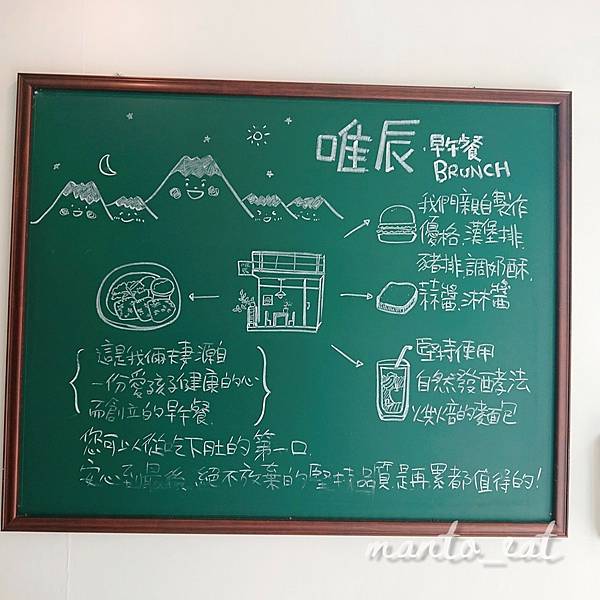 唯辰 早午餐
BRUNCH
我們親自製作
優格.漢堡排.
豬排.調奶酥.
蒜醬.淋醬
堅持使用
自然發酵法
烘焙的麵包
這是我倆夫妻源自
一份愛孩子健康的心
而創立的早午餐.
您可以從吃下肚的第一口.
安心到最後,絕不放棄的堅持品質.是再累都值得的!
manto_eat